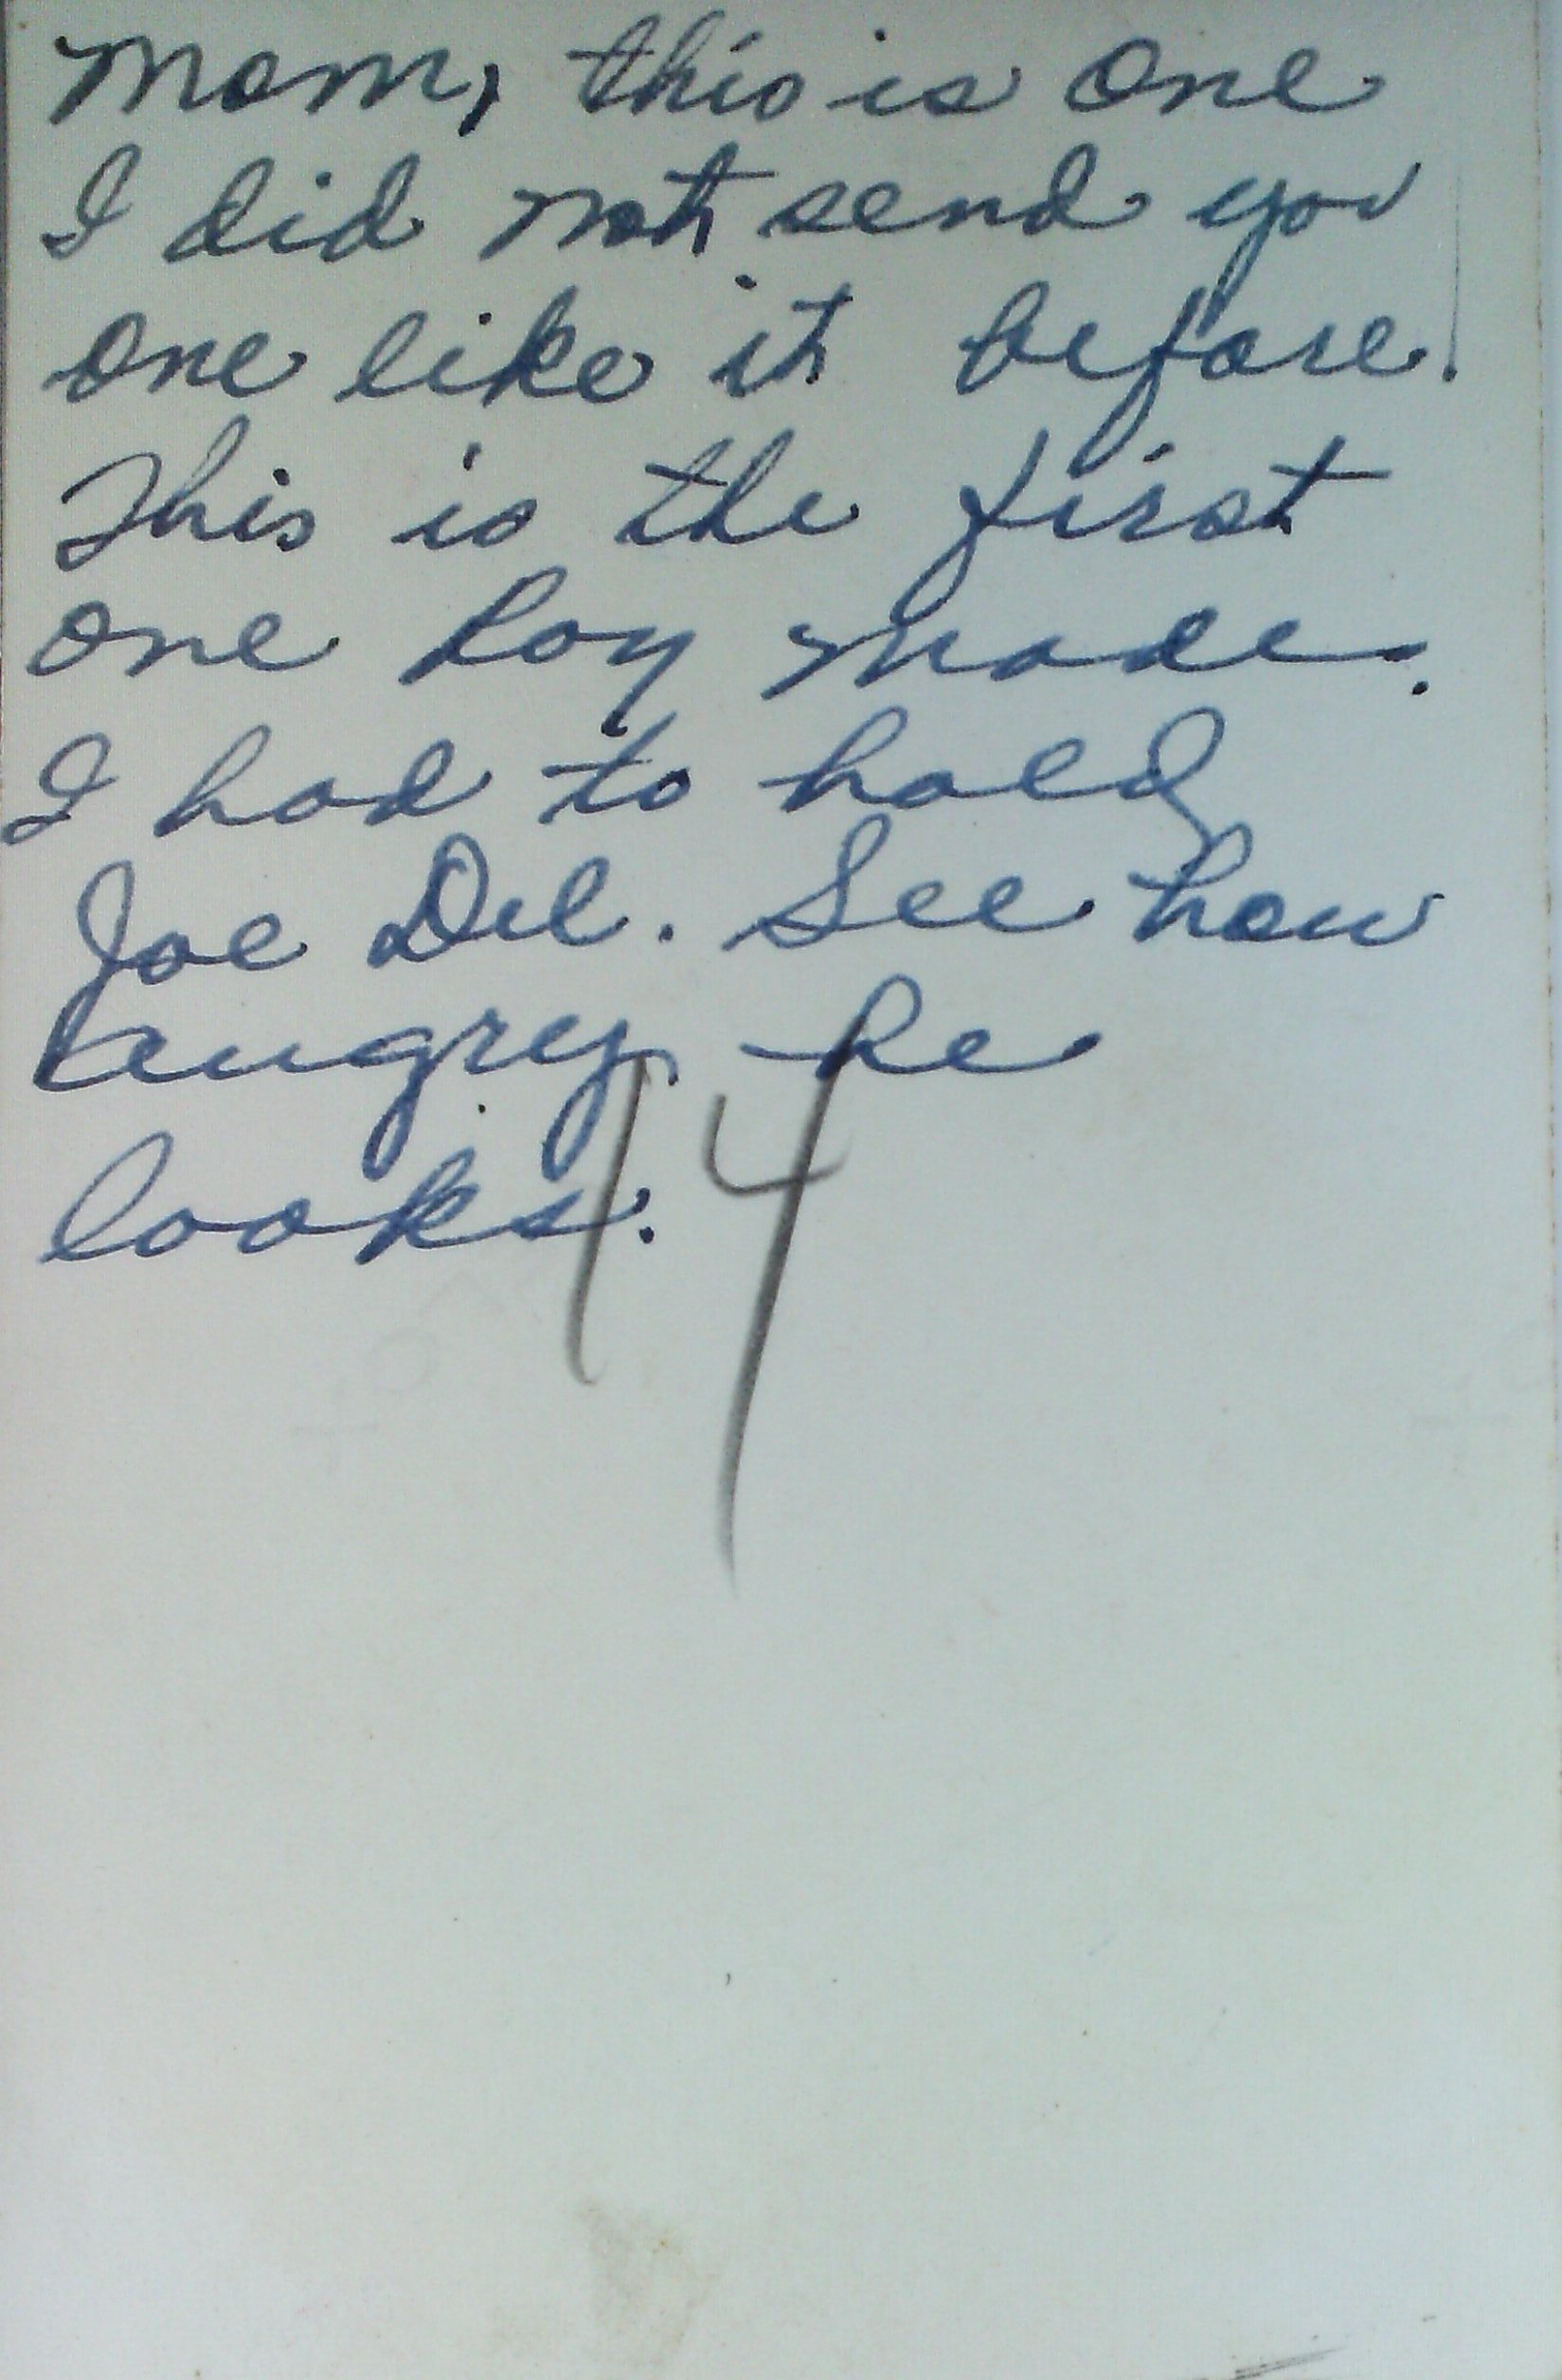 Mom, this is one
I did not send you
one like it before.
This is the first
one Roy made.
I had to hold
Joe Del. See how
angry he
looks.
14